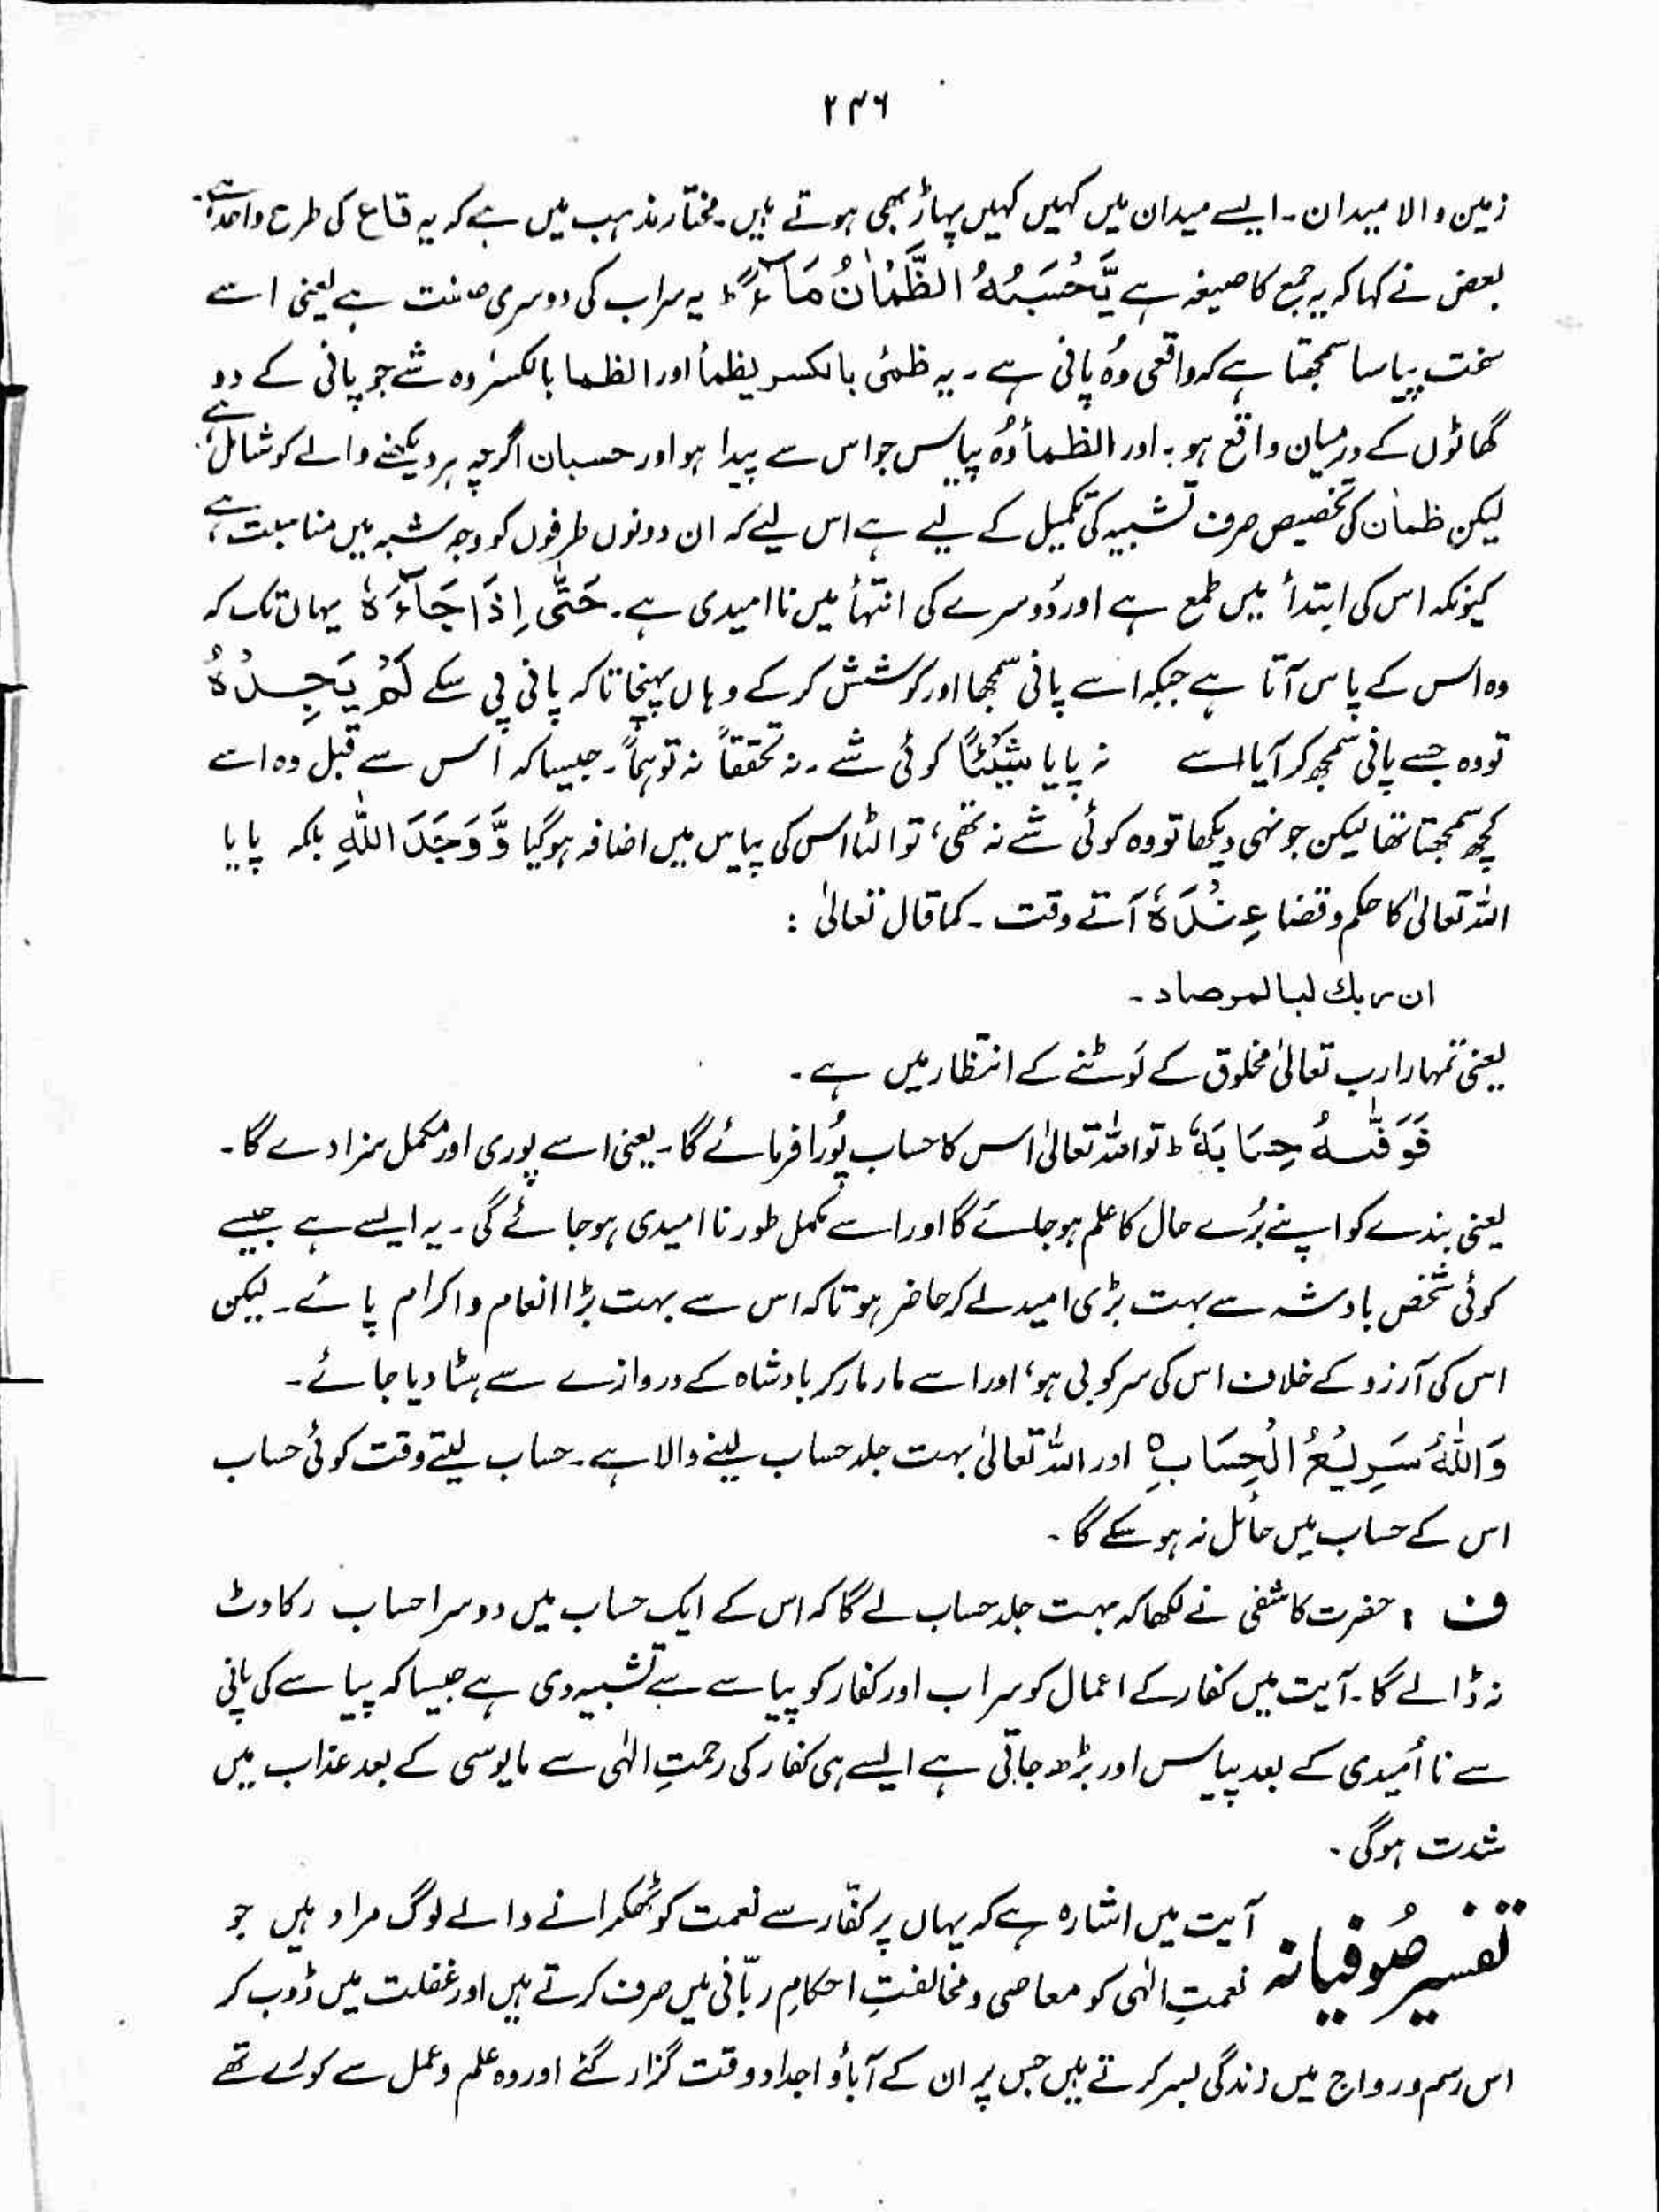 ۲۴۶
زمین والا میدان۔ ایسے میدان میں کہیں کہیں پہاڑ بھی ہوتے ہیں۔ مختار مذہب میں ہے کہ یہ قاع کی طرح واحد ہے۔
بعض نے کہا کہ یہ جمع کا صیغہ ہے یَّحْسَبُهُ الظَّمْاٰنُ مَآءًؕ یہ سراب کی دوسری صفت ہے یعنی اسے
سخت پیاسا سمجھتا ہے کہ واقعی وُہ پانی ہے۔ یہ ظمئی بالکسر یظمأ اور الظما بالکسر وہ شے جو پانی کے دو
گھاٹوں کے درمیان واقع ہو۔ اور الظمأ وُہ پیاس جو اس سے پیدا ہو اور حسبان اگرچہ ہر دیکھنے والے کو شامل ہے،
لیکن ظمان کی تخصیص صرف تشبیہ کی تکمیل کے لیے ہے اس لیے کہ ان دونوں طرفوں کو وجہ شبہ میں مناسبت ہے،
کیونکہ اس کی ابتدأ میں طمع ہے اور دُوسرے کی انتہأ میں ناامیدی ہے۔ حَتّٰۤى اِذَا جَآءَهٗ یہاں تک کہ
وہ اس کے پاس آتا ہے جبکہ اسے پانی سمجھا اور کوشش کر کے وہاں پہنچا تاکہ پانی پی سکے لَمْ یَجِدْهُ
تو وہ جسے پانی سمجھ کر آیا اسے نہ پایا شَیْـًٔا کوئی شے۔ نہ تحققاً نہ توہماً۔ جیسا کہ اس سے قبل وہ اسے
کچھ سمجھتا تھا لیکن جونہی دیکھا تو وہ کوئی شے نہ تھی، تو الٹا اس کی پیاس میں اضافہ ہوگیا وَّ وَجَدَ اللّٰهِ بلکہ پایا
اللہ تعالیٰ کا حکم و قضا عِنْدَهٗ آتے وقت۔ کما قال تعالیٰ :
ان ربك لبالمرصاد۔
یعنی تمہارا رب تعالیٰ مخلوق کے لَوٹنے کے انتظار میں ہے۔
فَوَفّٰىهُ حِسَابَهٗؕ تو اللہ تعالیٰ اس کا حساب پُورا فرمائے گا۔ یعنی اسے پوری اور مکمل سزا دے گا۔
یعنی بندے کو اپنے بُرے حال کا علم ہوجائے گا اور اسے مکمل طور ناامیدی ہوجائے گی۔ یہ ایسے ہے جیسے
کوئی شخص بادشہ سے بہت بڑی امید لے کر حاضر ہو تاکہ اس سے بہت بڑا انعام و اکرام پائے۔ لیکن
اس کی آرزو کے خلاف اس کی سرکوبی ہو، اور اسے مار مار کر بادشاہ کے دروازے سے ہٹا دیا جائے۔
وَاللّٰهُ سَرِیْعُ الْحِسَابِ۵ اور اللہ تعالیٰ بہت جلد حساب لینے والا ہے۔ حساب لیتے وقت کوئی حساب
اس کے حساب میں حائل نہ ہو سکے گا۔
ف : حضرت کاشفی نے لکھا کہ بہت جلد حساب لے گا کہ اس کے ایک حساب میں دوسرا حساب رکاوٹ
نہ ڈالے گا۔ آیت میں کفار کے اعمال کو سراب اور کفار کو پیاسے سے تشبیہ دی ہے جیسا کہ پیاسے کی پانی
سے نااُمیدی کے بعد پیاس اور بڑھ جاتی ہے ایسے ہی کفار کی رحمتِ الٰہی سے مایوسی کے بعد عذاب میں
شدت ہوگی۔
تفسیر صُوفیانہ آیت میں اشارہ ہے کہ یہاں پر کفّار سے نعمت کو ٹھکرانے والے لوگ مراد ہیں جو
نعمتِ الٰہی کو معاصی و مخالفتِ احکامِ ربّانی میں صرف کرتے ہیں اور غفلت میں ڈوب کر
اس رسم و رواج میں زندگی بسر کرتے ہیں جس پر ان کے آباؤ اجداد وقت گزار گئے اور وہ علم و عمل سے کورے تھے